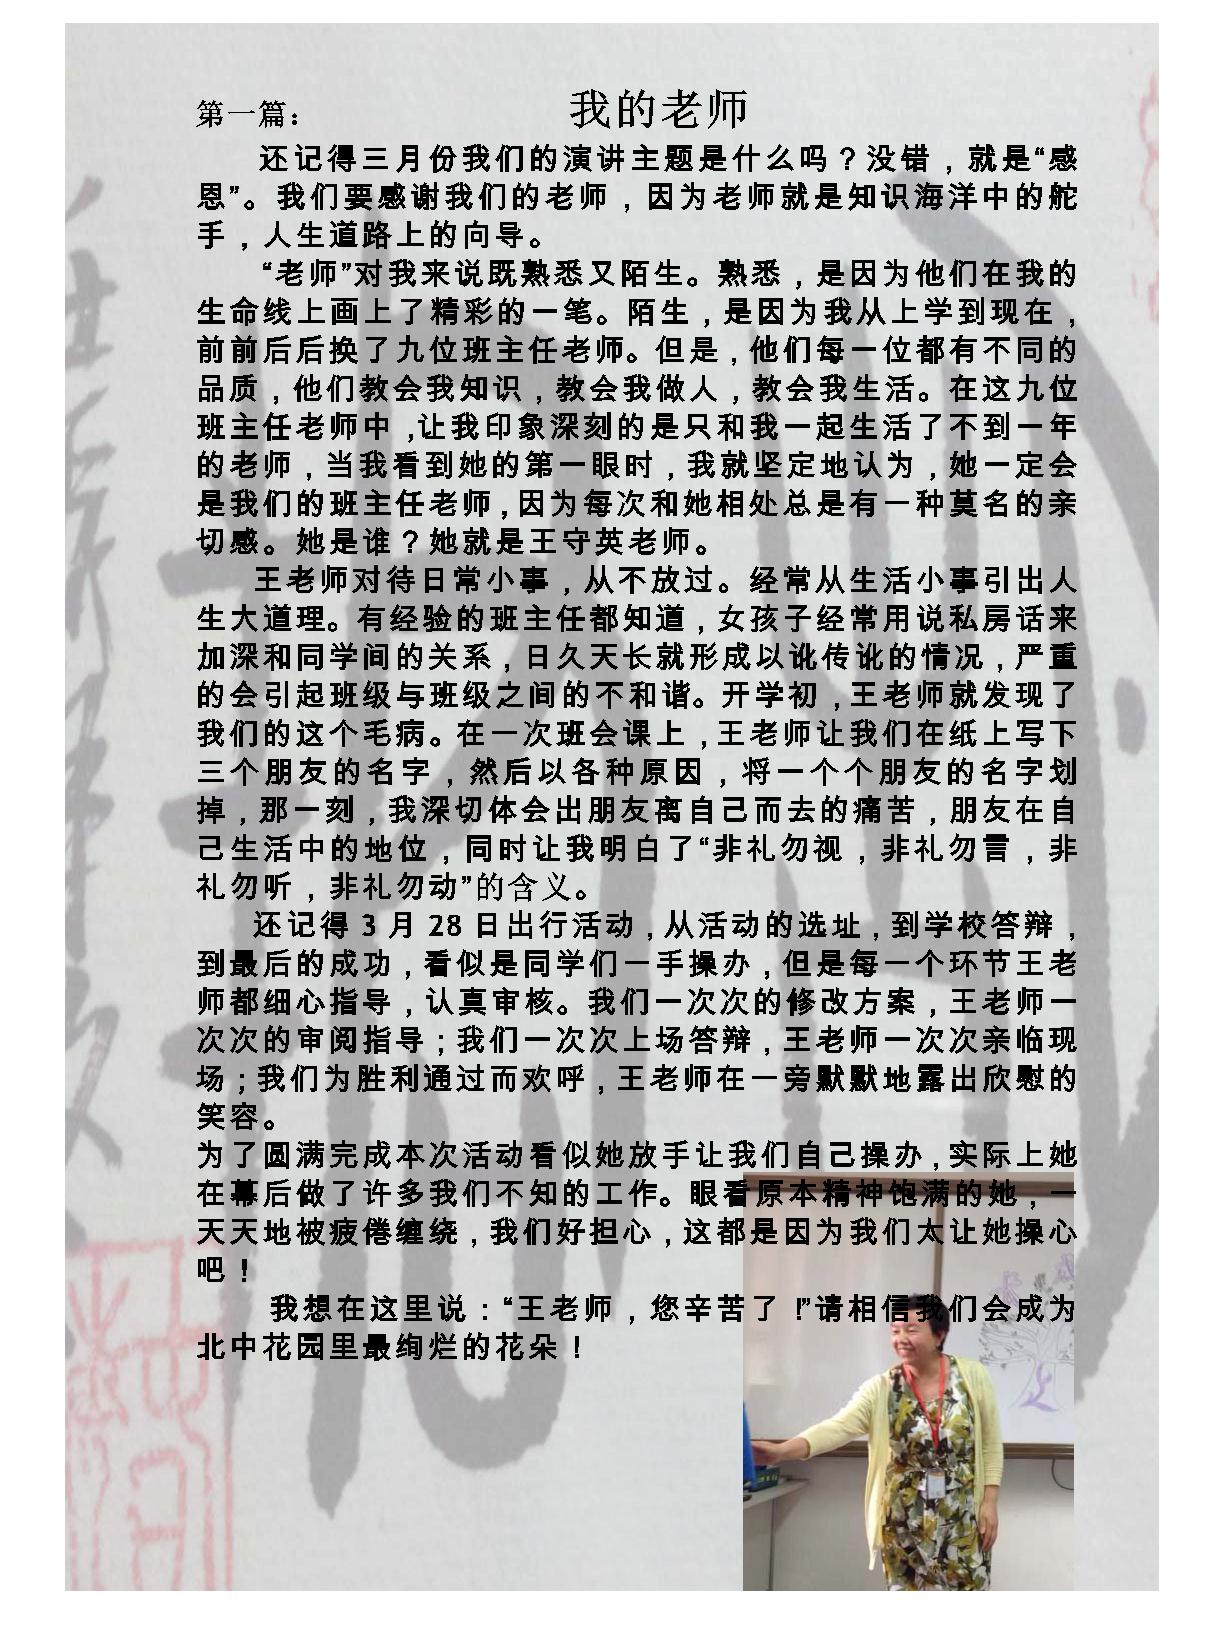 第一篇： 我的老师
还记得三月份我们的演讲主题是什么吗？没错，就是“感
恩”。我们要感谢我们的老师，因为老师就是知识海洋中的舵
手，人生道路上的向导。
“老师”对我来说既熟悉又陌生。熟悉，是因为他们在我的
生命线上画上了精彩的一笔。陌生，是因为我从上学到现在，
前前后后换了九位班主任老师。但是，他们每一位都有不同的
品质，他们教会我知识，教会我做人，教会我生活。在这九位
班主任老师中，让我印象深刻的是只和我一起生活了不到一年
的老师，当我看到她的第一眼时，我就坚定地认为，她一定会
是我们的班主任老师，因为每次和她相处总是有一种莫名的亲
切感。她是谁？她就是王守英老师。
王老师对待日常小事，从不放过。经常从生活小事引出人
生大道理。有经验的班主任都知道，女孩子经常用说私房话来
加深和同学间的关系，日久天长就形成以讹传讹的情况，严重
的会引起班级与班级之间的不和谐。开学初，王老师就发现了
我们的这个毛病。在一次班会课上，王老师让我们在纸上写下
三个朋友的名字，然后以各种原因，将一个个朋友的名字划
掉，那一刻，我深切体会出朋友离自己而去的痛苦，朋友在自
己生活中的地位，同时让我明白了“非礼勿视，非礼勿言，非
礼勿听，非礼勿动”的含义。
还记得 3 月 28 日出行活动，从活动的选址，到学校答辩，
到最后的成功，看似是同学们一手操办，但是每一个环节王老
师都细心指导，认真审核。我们一次次的修改方案，王老师一
次次的审阅指导；我们一次次上场答辩，王老师一次次亲临现
场；我们为胜利通过而欢呼，王老师在一旁默默地露出欣慰的
笑容。
为了圆满完成本次活动看似她放手让我们自己操办，实际上她
在幕后做了许多我们不知的工作。眼看原本精神饱满的她，一
天天地被疲倦缠绕，我们好担心，这都是因为我们太让她操心
吧！
我想在这里说：“王老师，您辛苦了！”请相信我们会成为
北中花园里最绚烂的花朵！